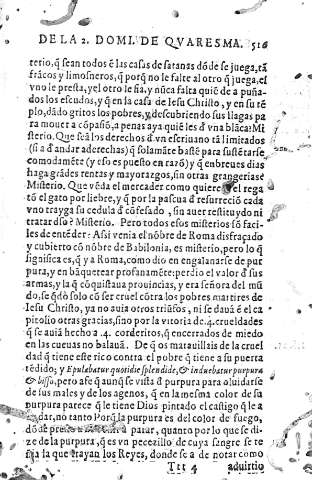 DE LA 2. DOMI. DE QVARESMA. 516
terio, q̃ sean todos ẽ las casas de satanas dõde se juega, tã
frãcos y limosneros, q̃ porq̃ no le falte al otro q̃ juega, el
vno le presta, y el otro le fia, y nũca falta quiẽ de a puña-
dos los escudos, y q̃ en la casa de Iesu Christo, y en su tẽ
plo, dãdo gritos los pobres, y descubriendo sus llagas pa
ra mouer a cõpasiõ, a penas aya quiẽ les dˉ vna blãca? Mi
sterio. Que seã los derechos dˉ vn escriuano tã limitados
(si a dˉ andar a derechas) q̃ solamẽte bastẽ para sustẽtarse
comodamẽte (y eso es puesto en razõ) y q̃ en breues dias
haga grãdes rentas y mayorazgos, sin otras grangerias?
Misterio. Que vẽda el mercader como quiere el rega
tõ el gato por liebre, y q̃ por la pascua dˉ resurreciõ cada
vno trayga su cedula dˉ cõfesado, sin auer restituydo ni
tratar dˉso? Misterio. Pero todos esos misterios sõ faci-
les de entẽder: Asi venia el nõbre de Roma disfraçado
y cubierto cõ nõbre de Babilonia, es misterio, pero lo q̃
significa es, q̃ y a Roma, como dio en engalanarse de pur
pura, y en bãquetear profanamẽte: perdio el valor dˉ sus
armas, y la q̃ cõquistaua prouincias, y era señora del mũ
do, se q̃dò solo cõ ser cruel cõtra los pobres martires de
Iesu Christo, ya no auia otros triũfos, ni se daua ẽ el ca
pitolio otras gracias, sino por la vitoria de .4. crueldades
q̃ se auiã hecho a .4. corderitos, q̃ encerrados de miedo
en las cueuas no balauã. De q̃ os marauillais de la cruel
dad q̃ tiene este rico contra el pobre q̃ tiene a su puerta
tẽdido; y Epulabatur quotidie splendide, & induebatur purpura
& bisso, pero afe q̃ aunq̃ se vista dˉ purpura para oluidarse
de sus males y de los agenos, q̃ en la mesma color de su
purpura parece q̃ le tiene Dios pintado el castigo q̃ le a
dar, no tanto Porq̃ la purpura es del color de fuego,
a parar, quanto por lo que se di-
ze de la purpura, q̃ es vn pecezillo de cuya sangre se te
la que trayan los Reyes, donde se a de notar como
Ttt 4 aduirtio